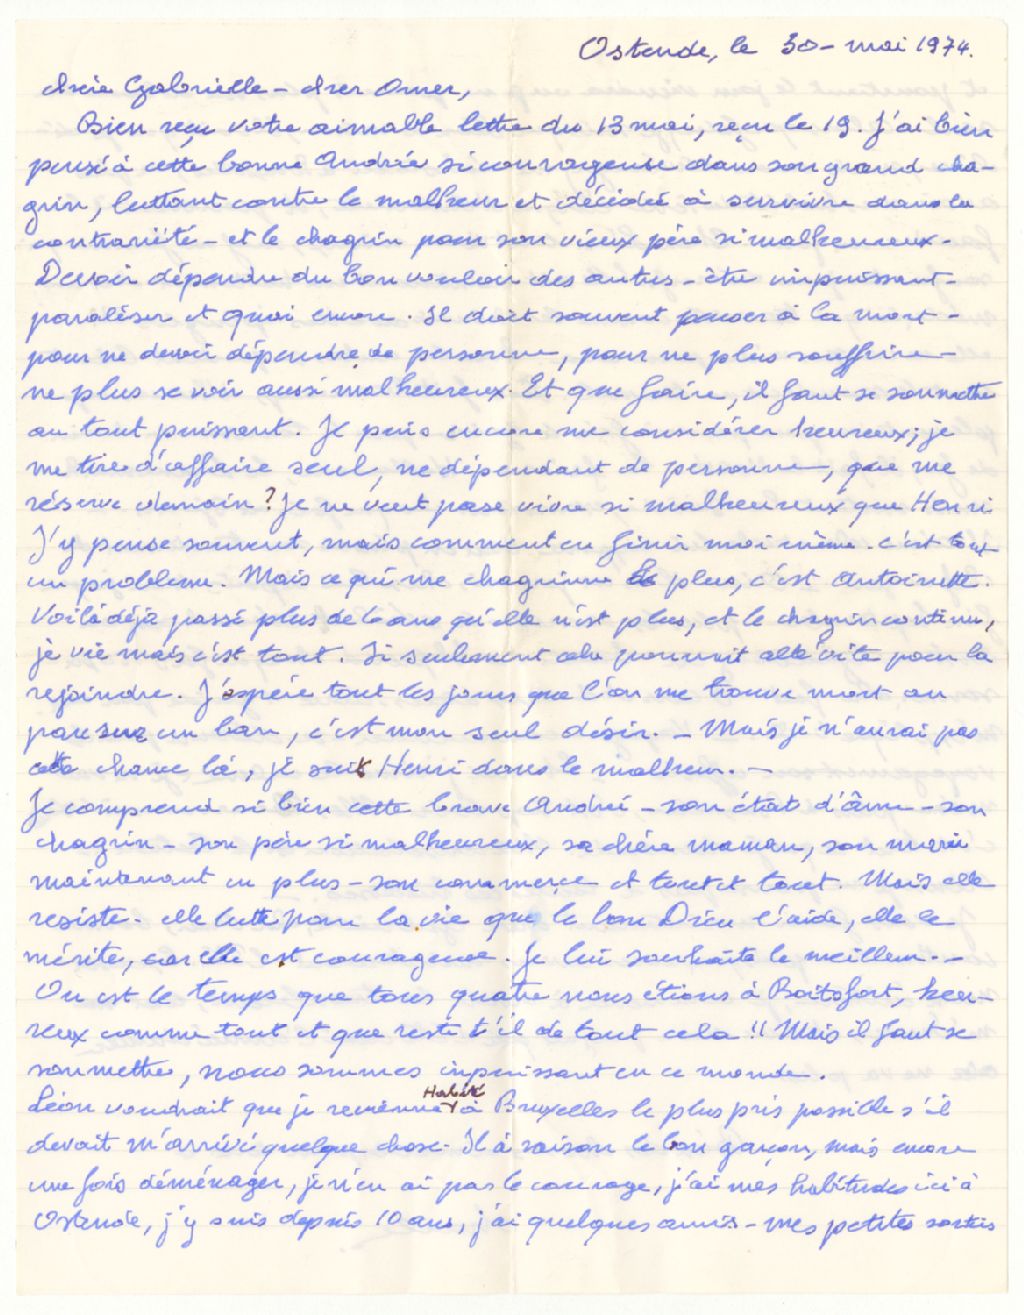 Ostende, le 30 - mai 1974.
Chère Gabrielle - cher Omer,
Bien reçu votre aimable lettre du 13 mai, reçu le 19. J'ai bien
pensé à cette bonne Andrée si courageuse dans son grand cha-
grin, luttant contre le malheur et décidée à survivre dans la
contrariété - et le chagrin pour son vieux père si malheureux -
Devoir dépendre du bon vouloir des autres - être impuissant -
paraléser et quoi encore. Il doit souvent penser à la mort -
pour ne devoir dépendre de personne, pour ne plus souffrire -
ne plus se voir aussi malheureux. Et que faire, il faut se soumettre
au tout puissant. Je puis encore me considérer heureux; je
me tire d'affaire seul, ne dépendant de personne, que me
réserve demain? Je ne veut pas vivre si malheureux que Henri
J'y pense souvent, mais comment en finir moi même. c'est tout
un probleme. Mais ce qui me chagrinne le plus, c'est Antoinette.
Voilà déjà passé plus de ans qu'elle n'est plus, et le chagrin continu,
je vie mais c'est tout. Si seulement cela pouvait allé vite pour la
rejoindre. J'espère tout les jours que l'on me trouve mort au
parc sur un ban, c'est mon seul désir. - Mais je n'aurai pas
cette chance là, je suit Henri dans le malheur. -
Je comprend si bien cette brave André - son état d'âme - son
chagrin - son père si malheureux, sa chère maman, son mari
maintenant en plus - son commerce et tout et tout. Mais elle
resiste - elle lutte pour la vie que le bon Dieu l'aide, elle le
mérite, car elle est courageuse. Je lui souhaite le meilleur. -
Ou est le temps que tous quatre nous étions à Boitsfort, heu-
reux comme tout et que reste t'il de tout cela!! Mais il faut se
soumettre, nous sommes inpuissant en ce monde.
Léon voudrait que je revienne Habité à Bruxelles le plus près possible s'il
devait m'arrivé quelque chose. Il à raison le bon garçon, mais encore
une fois déménager, je n'en ai pas le courage, j'ai mes habitudes ici à
Ostende, j'y suis depuis 10 ans, j'ai quelques amis - mes petites sorties